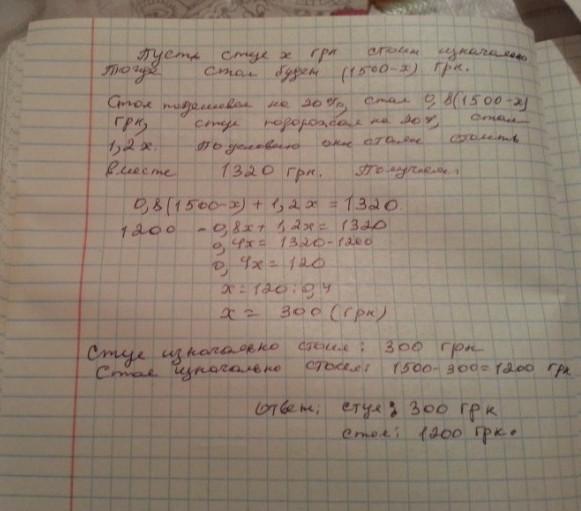 Пусть стул x грн стоил изначально
Тогда стол будет (1500-x) грн.
Стол подешевел на 20%, стал 0,8(1500-x)
грн, стул подорожал на 20%, стал
1,2x. По условию они стали стоить
вместе 1320 грн. Получаем:
0,8(1500-x) + 1,2x = 1320
1200 - 0,8x + 1,2x = 1320
0,4x = 1320 - 1200
0,4x = 120
x = 120 : 0,4
x = 300 (грн)
Стул изначально стоил: 300 грн
Стол изначально стоил: 1500 - 300 = 1200 грн
Ответ: стул: 300 грн
стол: 1200 грн.